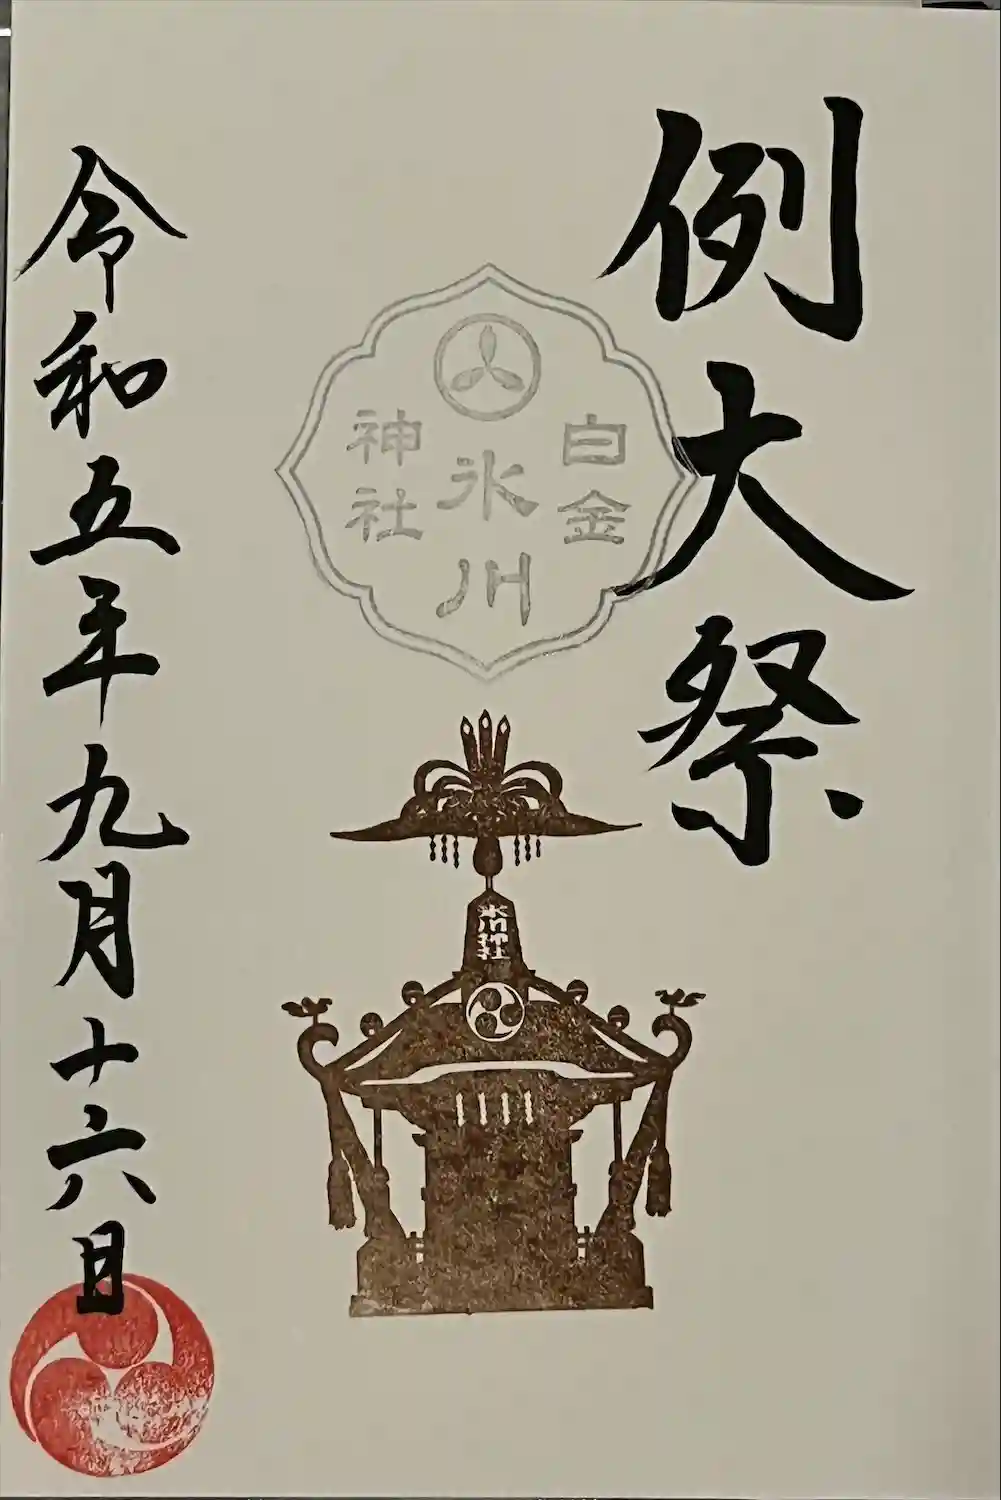 例大祭
白金
氷川
神社
氷川神社
令和五年九月十六日